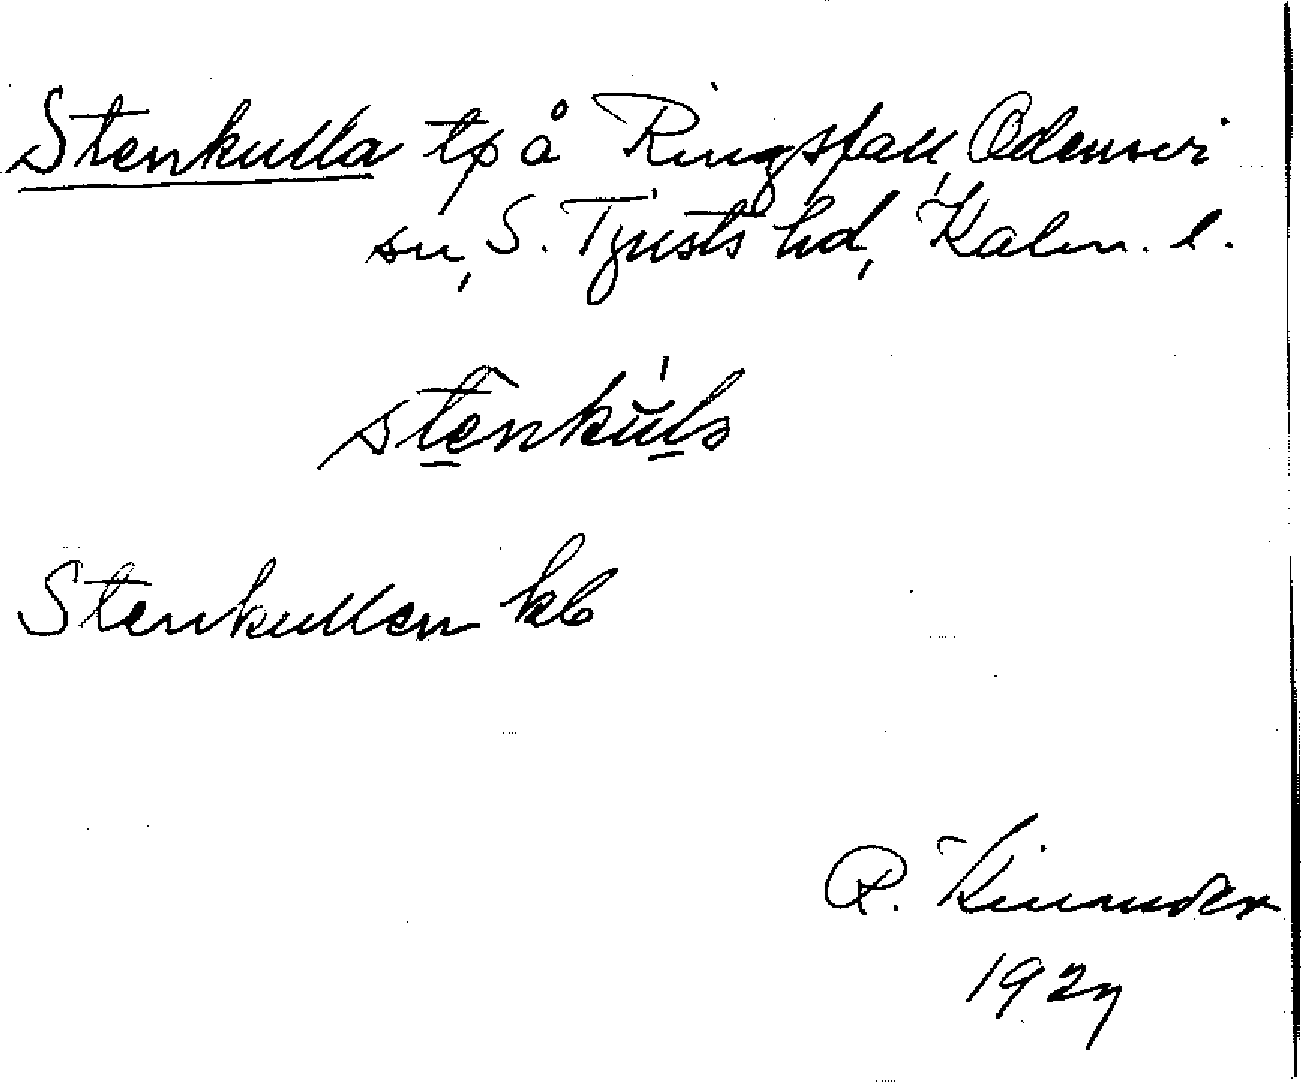 Stenkulla tp å Ringsfall, Odensvi
sn, S. Tjusts hd, Kalm. l.
Stenkullen kb
R. Kinander
1927